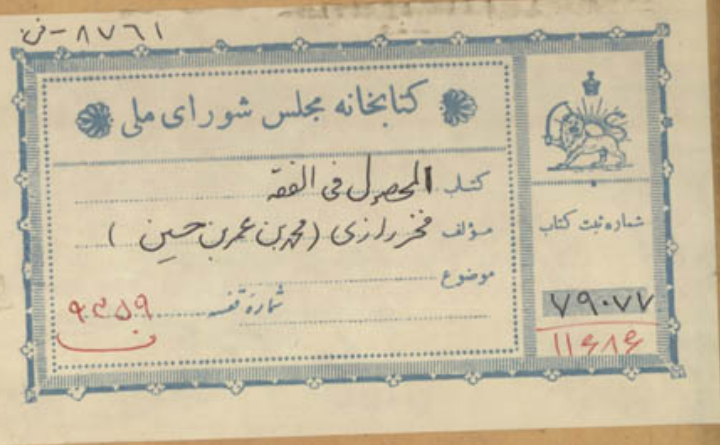 ۸۷۶۱ - ف
کتابخانه مجلس شورای ملی
کتاب المحصول فی الفقه
مؤلف فخر رازی (محمد بن عمر بن حسین)
موضوع
شماره قفسه
شماره ثبت کتاب
۷۹۰۷۷
۱۱۶۸۶